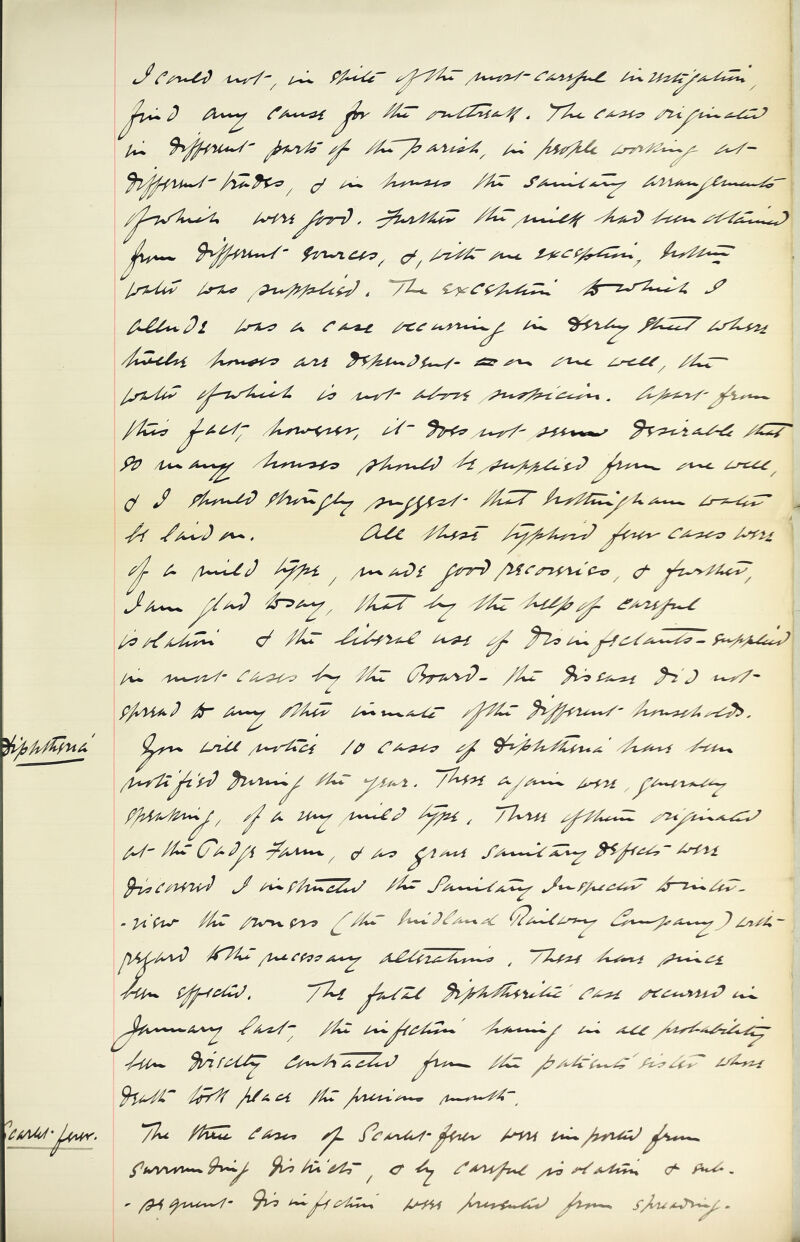 I could not, in spite of the most careful investigation,
find any cause for the outbreak. The cases originated
in different parts of the parish, in people working at
different trades, & in houses the sanitary arrangements
of which were good. Further the milk had been obtained
from different sources, &, with one exception, Nottm
water was supplied. The exception to which I
allude was a case occurring in Derby Street where
twelve houses are dependent on one well, the
water of which is not above suspicion. Apart from
this fact, however, it does not seem desirable that
so many houses should be supplied from one well,
& I should strongly suggest that Nottingham water
be laid on. All these typhoid fever cases were
of a mild type, made good recoveries, & further,
I am glad to say, that by the help of careful
isolation & the liberal use of disinfectants - supplied
in most cases by the Board - the disease did not
spread to any other inmate of the different households.
Diphtheria You will notice 10 cases of Diphtheria have been
notified during the year. These again were, generally
speaking, of a very mild type. Three of them originated
at the Padge Farm, & as grave sanitary defects were
discovered I instructed the Sanitary Inspector to inter-
-view the owners (the Midland Railway Company) with
regard to the necessary alterations. These have since
been effected. The fatal diphtheritic case occurred in
January last, the infection having in all probability
been directly contracted from the patients' sister whose
death took place the previous month.
Scarlet fever. The three cases of Scarlet fever were imported from
surrounding districts, & by careful isolation & sub-
-sequent disinfection were prevented from spreading.